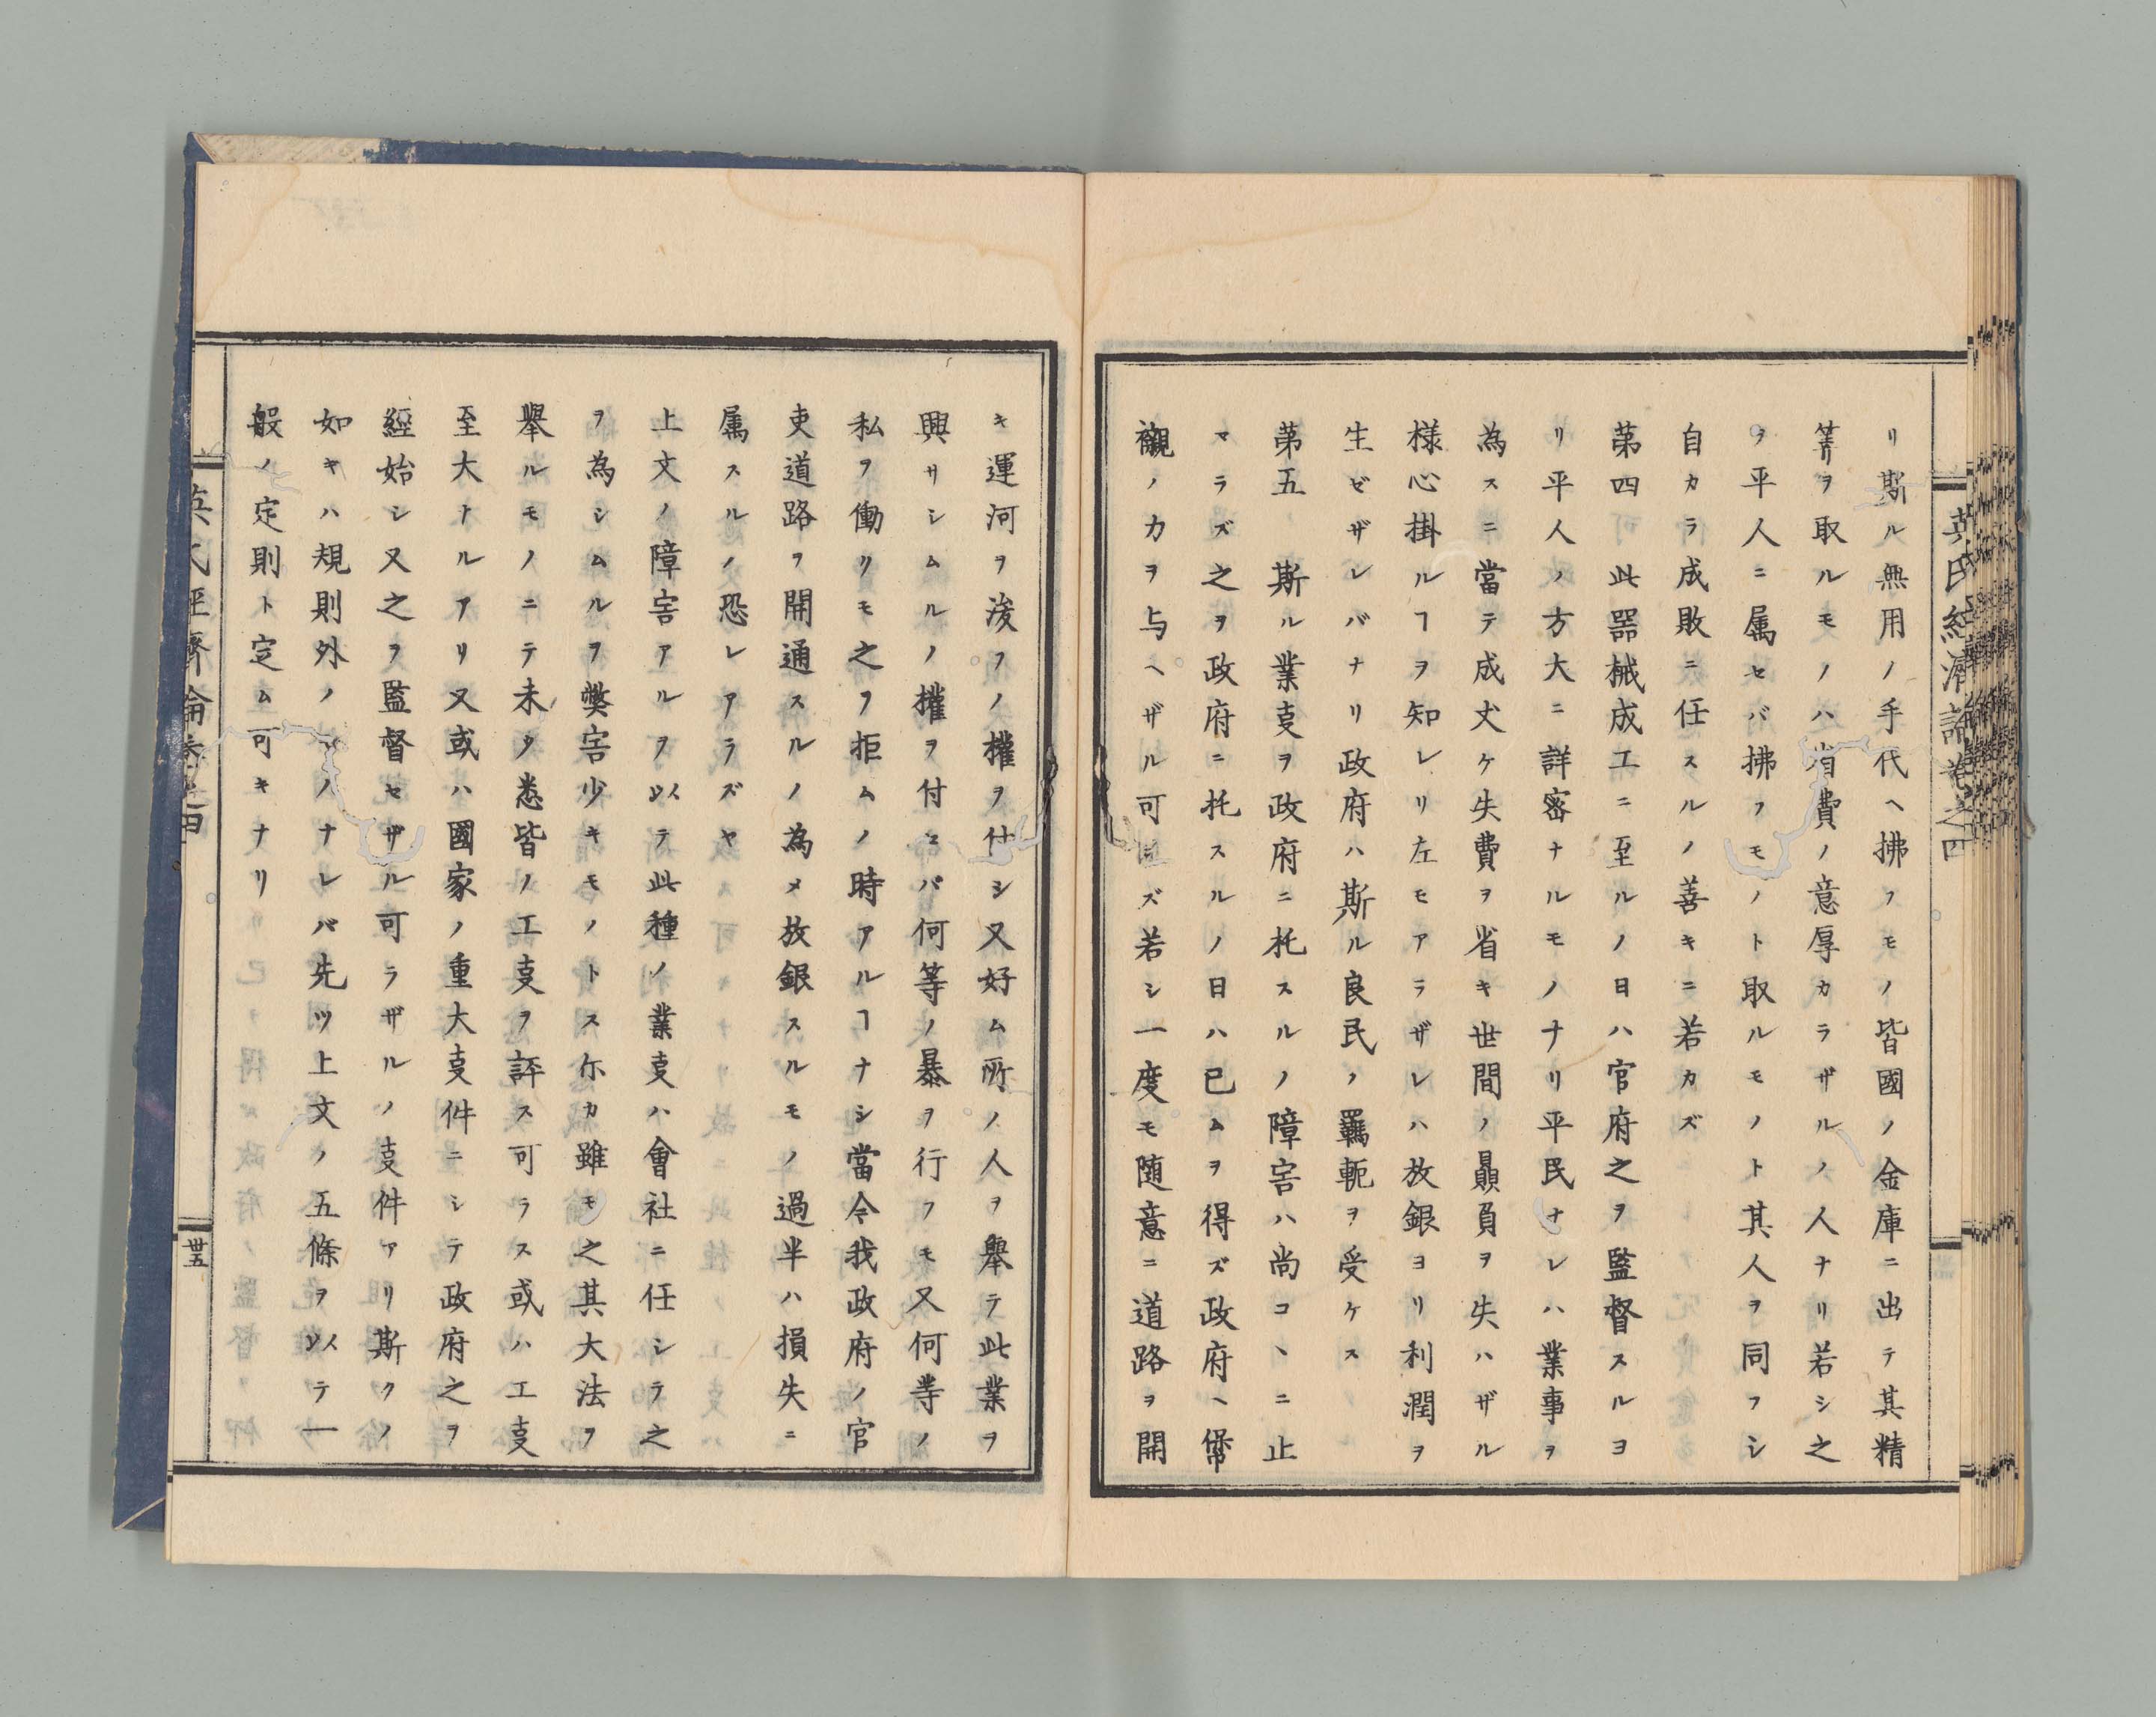 英氏經濟論卷之四
リ斯ル無用ノ手代ヘ拂フモノ皆國ノ金庫ニ出テ其精
算ヲ取ルモノハ省費ノ意厚カラザルノ人ナリ若シ之
ヲ平人ニ属セバ拂フモノト取ルモノト其人ヲ同フシ
自カラ成敗ニ任スルノ善キニ若カズ
第四此器械成工ニ至ルノ日ハ官府之ヲ監督スルヨ
リ平人ノ方大ニ詳密ナルモノナリ平民ナレハ業事ヲ
為スニ當テ成丈ケ失費ヲ省キ世間ノ贔負ヲ失ハザル
様心掛ルヿヲ知レリ左モアラザレハ放銀ヨリ利潤ヲ
生ゼザレバナリ政府ハ斯ル良民ノ羈軛ヲ受ケス
第五 斯ル業叓ヲ政府ニ托スルノ障害ハ尚コヽニ止
マラズ之ヲ政府ニ托スルノ日ハ已ムヲ得ズ政府ヘ幇
襯ノカヲ与ヘザル可ラズ若シ一度モ随意ニ道路ヲ開
キ運河ヲ浚フノ權ヲ付シ又好ム所ノ人ヲ舉テ此業ヲ
興サシムルノ權ヲ付セバ何等ノ暴ヲ行フモ又何等ノ
私ヲ働リモ之ヲ拒ムノ時アルヿナシ當今我政府ノ官
吏道路ヲ開通スルノ為メ放銀スルモノ過半ハ損失ニ
属スルノ恐レアラズヤ
上文ノ障害アルヲ以テ此種ノ業叓ハ會社ニ任シテ之
ヲ為シムルヲ獘害少キモノトス尓カ雖モ之其大法ヲ
舉ルモノニテ未タ悉皆ノ工叓ヲ評ス可ラス或ハ工叓
至大ナルアリ又或ハ國家ノ重大叓件ニシテ政府之ヲ
經始シ又之ヲ監督セザル可ラザルノ叓件アリ斯クノ
如キハ規則外ノモノナレバ先ツ上文ノ五條ヲ以テ一
般ノ定則ト定ム可キナリ
英氏經濟論卷之四
卅五